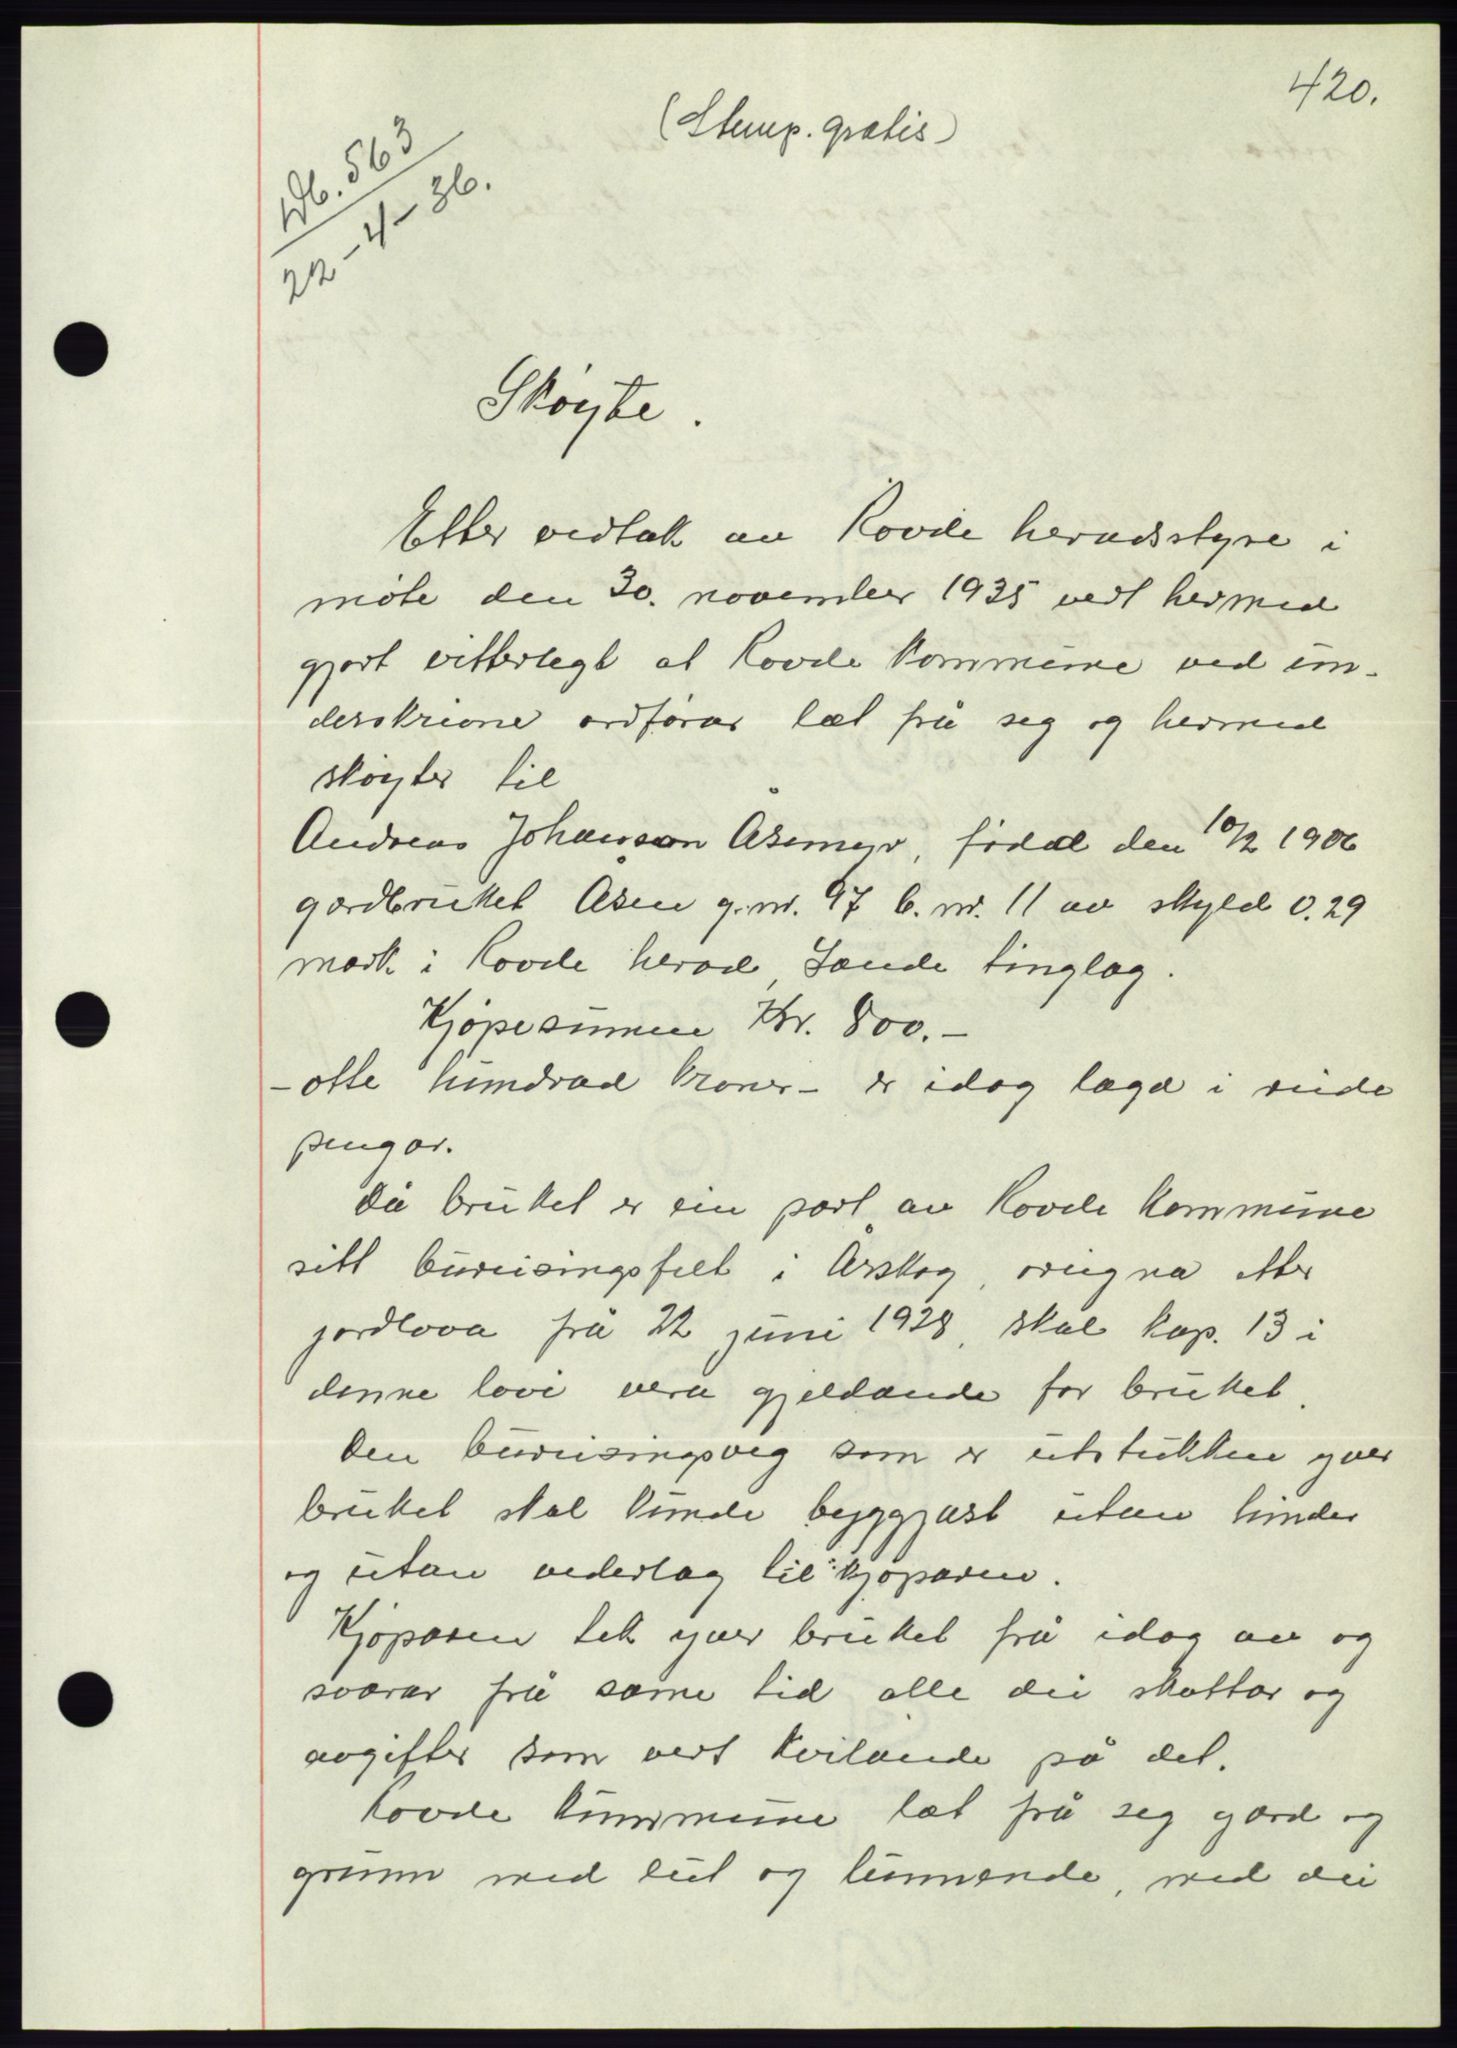 420.
(Stemp. gratis)
Db. 563
22-4-36.
Skøyte.
Etter vedtak av Rovde heradsstyre i
møte den 30. november 1935 vert hermed
gjort vitterlegt at Rovde kommune ved un-
derskrivne ordførar læt frå seg og hermed
skøyter til
Andreas Johansson Åsemyr, fødd den 10/2 1906
gardbruket Åsen g.nr. 97 b.nr. 11 av skyld 0.29
mark i Rovde herad, Sande tinglag.
Kjøpesumen Kr. 800.-
- otte hundrad kroner - er idag lagd i reide
pengar.
Då bruket er ein part av Rovde kommune
sitt bureisingsfelt i Årskog, oreigna etter
jordlova frå 22 juni 1928, skal kap. 13 i
denne lovi vera gjeldande for bruket.
Den bureisingsveg som er utstukken yver
bruket skal kunde byggjast utan hinder
og utan vederlag til kjøparen.
Kjøparen tek yver bruket frå idag av og
svarar frå same tid alle dei skattar og
avgifter som vert kvilande på det.
Rovde kommune læt frå seg gard og
grunn med lut og lunnende, med dei